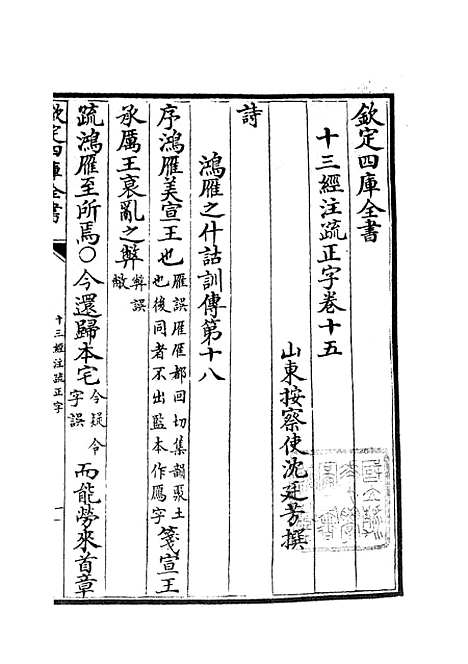 欽定四庫全書
十三經注疏正字卷十五
山東按察使沈廷芳撰
詩
鴻雁之什詁訓傳第十八
序鴻雁美宣王也雁誤雁雁都回切集韻聚土也後同者不出監本作鴈字箋宣王
承厲王衰亂之弊弊誤敝
疏鴻雁至所焉〇今還歸本宅今疑令字誤而能勞來首章
欽定四庫全書
十三經注疏正字
一